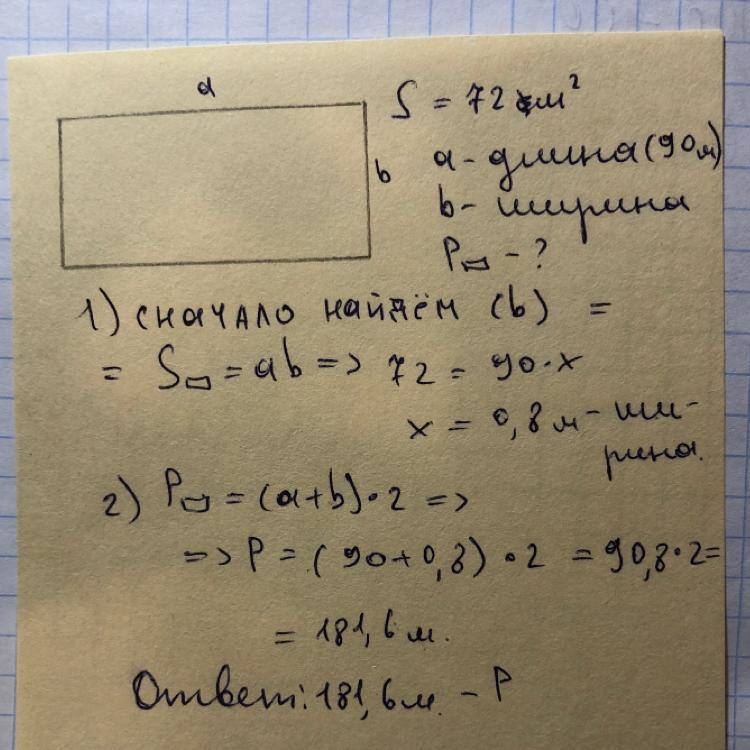 a
S = 72 м²
b
a - длина (90м)
b - ширина
P▭ - ?
1) сначало найдём (b) =
= S▭ = ab => 72 = 90·x
x = 0,8 м - ши-
рина.
2) P▭ = (a+b)·2 =>
=> P = (90+0,8)·2 = 90,8·2=
= 181,6 м.
Ответ: 181,6м. - P